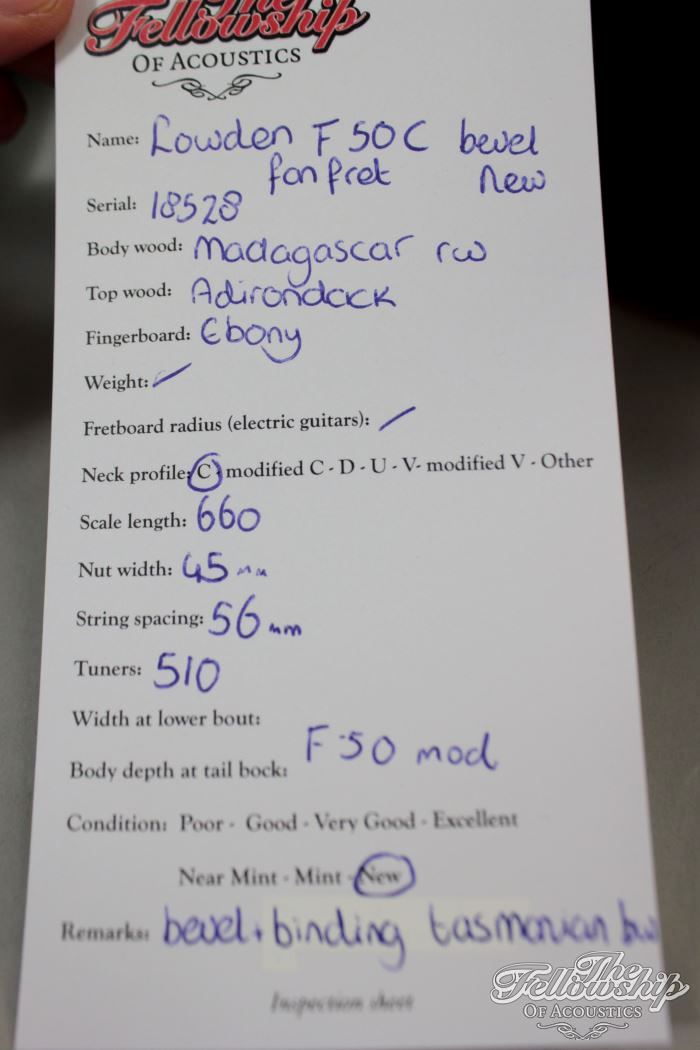 The
Fellowship
OF ACOUSTICS
Name: Lowden F 50 C bevel
fan fret new
Serial: 18528
Body wood: Madagascar rw
Top wood: Adirondack
Fingerboard: Ebony
Weight: /
Fretboard radius (electric guitars): /
Neck profile: C - modified C - D - U - V- modified V - Other
Scale length: 660
Nut width: 45 mm
String spacing: 56 mm
Tuners: 510
Width at lower bout:
F-50 mod
Body depth at tail bock:
Condition: Poor - Good - Very Good - Excellent
Near Mint - Mint - New
Remarks: bevel + binding tasmanian bw
Inspection sheet
The
Fellowship
OF ACOUSTICS